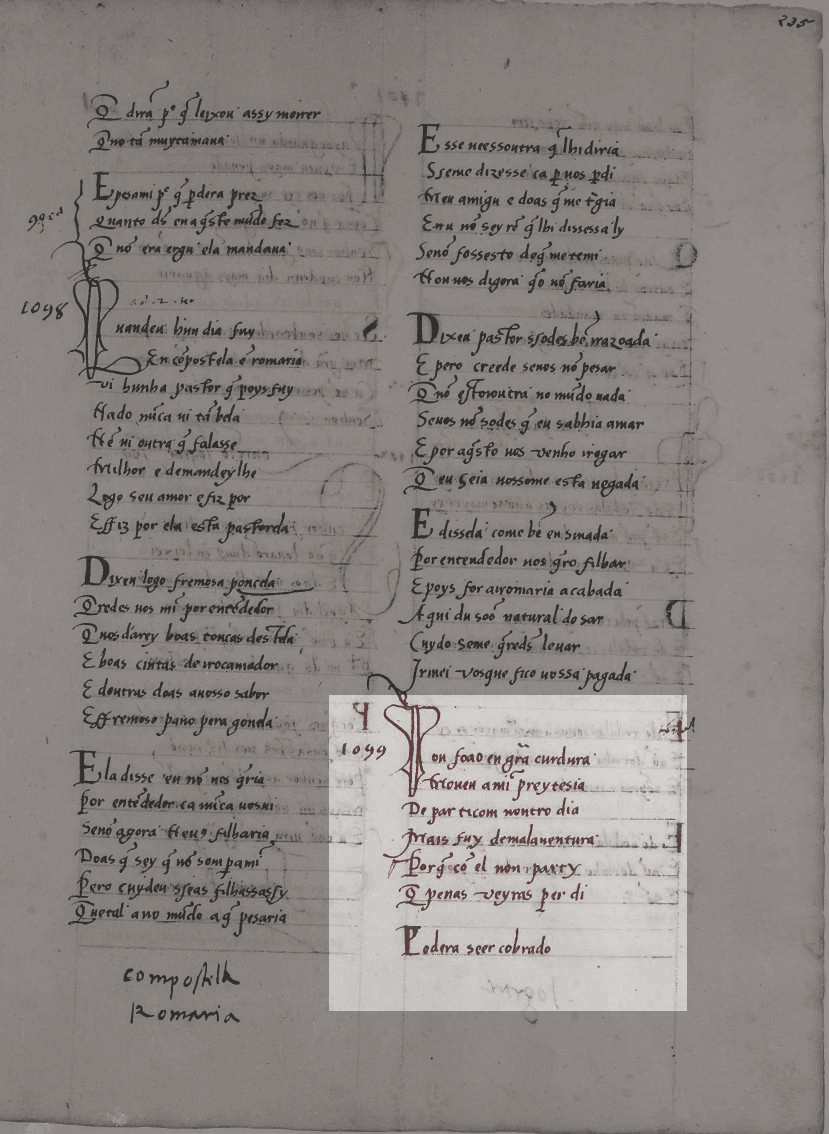 235
Q̃ dirã p̃ q̃ leixou assy morrer
Q̃no tã muytamaua
E pesami p̃ q̃ perdera prez
Quanto d̃s en aq̃ste mũdo fez
Q̃ nõ era ergu ela mandaua
1098
Quandeu hun dia fuy
En cõpostela ẽ romaria
Vi hunha pastor q̃ poys fuy
Nado nũca ui tã bela
Nẽ ui outra q̃ falasse
Milhor e demandeylhe
Logo seu amor e fiz por
Effiz por ela esta pastorela
Dixeu logo fremosa poncela
Q̃redes uos mĩ por entẽdedor
Q̃uos darey boas toucas destela
E boas cintas de rrocamador
E doutras doas auosso sabor
Effremoso pano pera gonela
Ela disse eu nõ uos q̃ria
Por entẽdedor ca nũca uosui
Senõ agora
Doas q̃ sey q̃ nõ som pami
Pero cuydeu sseas filhassassy
Quetal a no mũdo a q̃ pesaria
compostella
Romaria
E sse ueessoutra q̃ lhi diria
Sseme dizesse ca per uos perdi
Meu amigu e doas q̃ me tragia
Eu nõ sey rẽ q̃ lhi dissessaly
Senõ fossesto deq̃ me temi
Non uos digora q̃o nõ faria
Dixeu pastor ssodes bẽ rrazoada
E pero creede seuos nõ pesar
Q̃nõ estoioutra no mũdo nada
Seuos nõ sodes q̃ eu sabbia amar
E por aq̃sto uos venho rrogar
Q̃ eu seia uossome esta uegada
E dissela come bẽ ensinada
Por entendedor uos q̃ro filhar
E poys for a rromaria acabada
Aqui du soõ natural do sar
Cuydo seme q̃reds leuar
Irmei uosque fico uossa pagada
1099
Don foao en grã curdura
Moueu a mi preytesia
De particom noutro dia
Mais fuy demalauentura
Porq̃ cõ el non party
Q̃ penas veyras per di
Podera seer cobrado